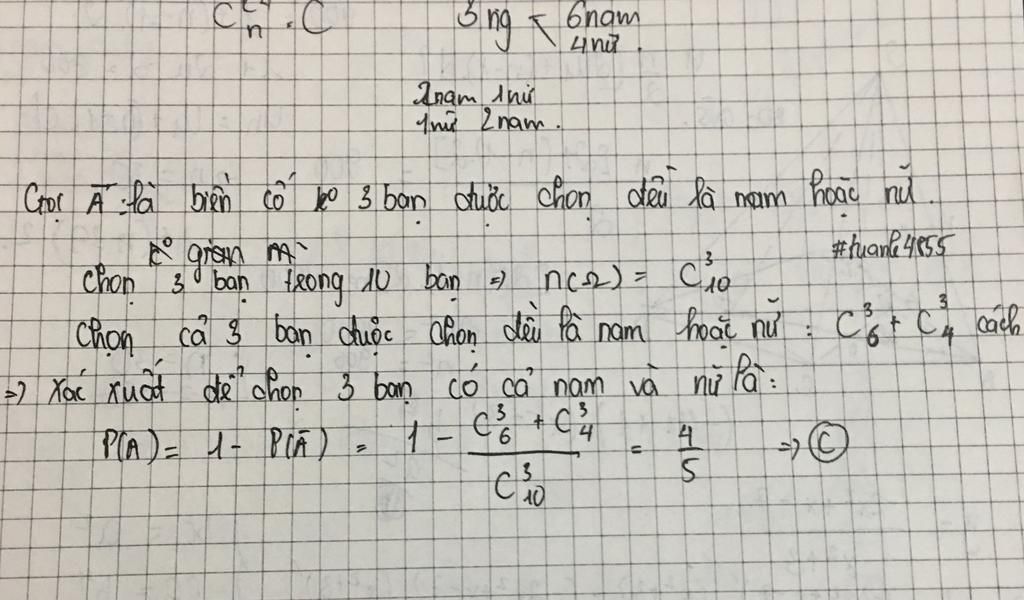 C n . C 3 ng < 6 nam
4 nữ.
2 nam 1 nữ
1 nữ 2 nam.
Gọi Ā: là biến cố 3 bạn được chọn đều là nam hoặc nữ.
k° gian
#tuanh4855
chọn 3 bạn trong 10 bạn => n(Ω) = C³₁₀
chọn cả 3 bạn được chọn đều là nam hoặc nữ : C³₆ + C³₄ cách
=> xác xuất để chọn 3 bạn có cả nam và nữ là:
P(A) = 1 - P(Ā) = 1 - (C³₆ + C³₄) / C³₁₀ = 4/5 => C